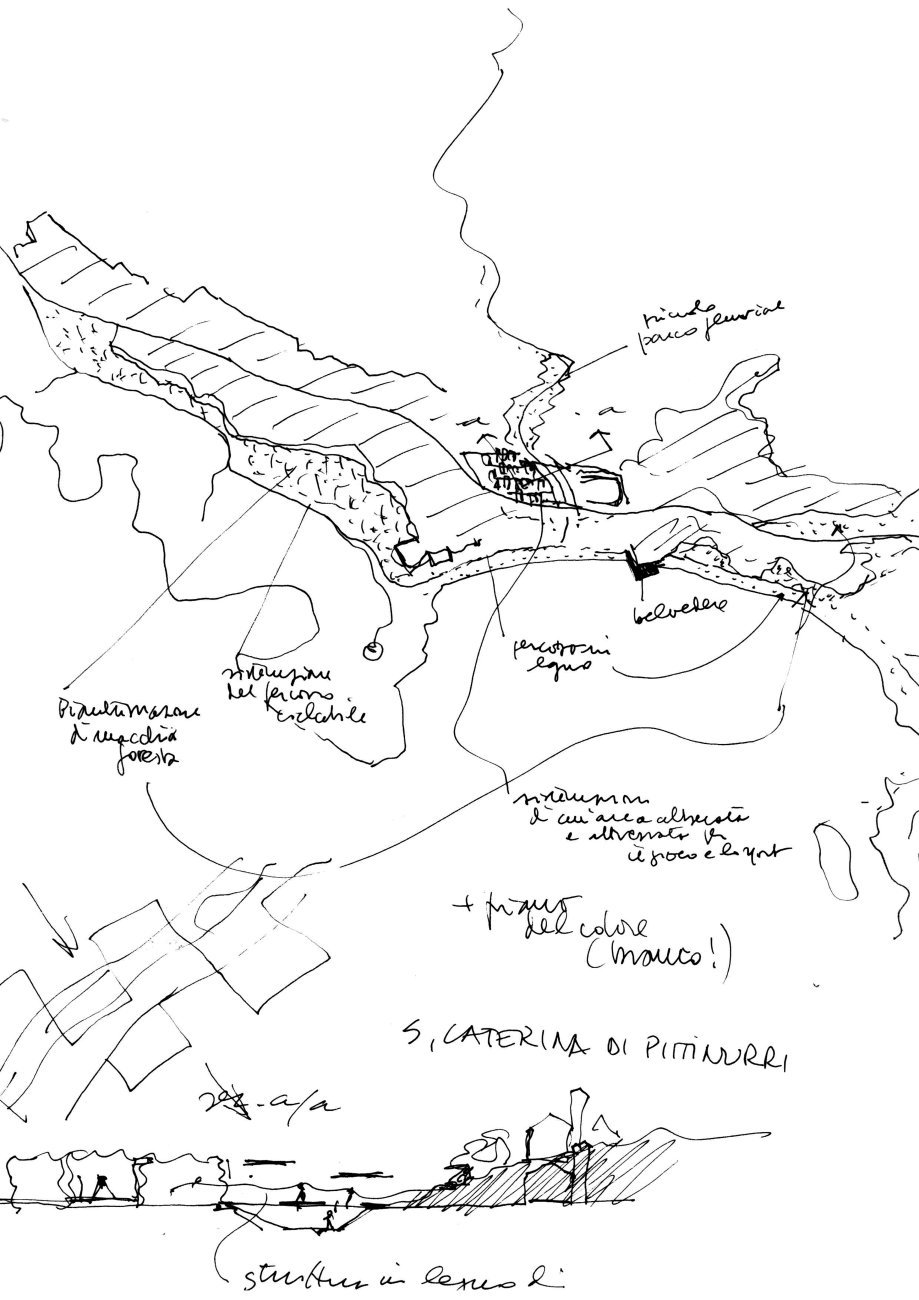 piccolo
parco fluviale
a
a
belvedere
percorso in
legno
sistemazione
del percorso
ciclabile
Piantumazione
di macchia
foresta
sistemazione
di un'area alberata
e attrezzata per
il gioco e lo sport
+ piano
del colore
(bianco!)
S. CATERINA DI PITTINURRI
sez. a/a
struttura in legno di